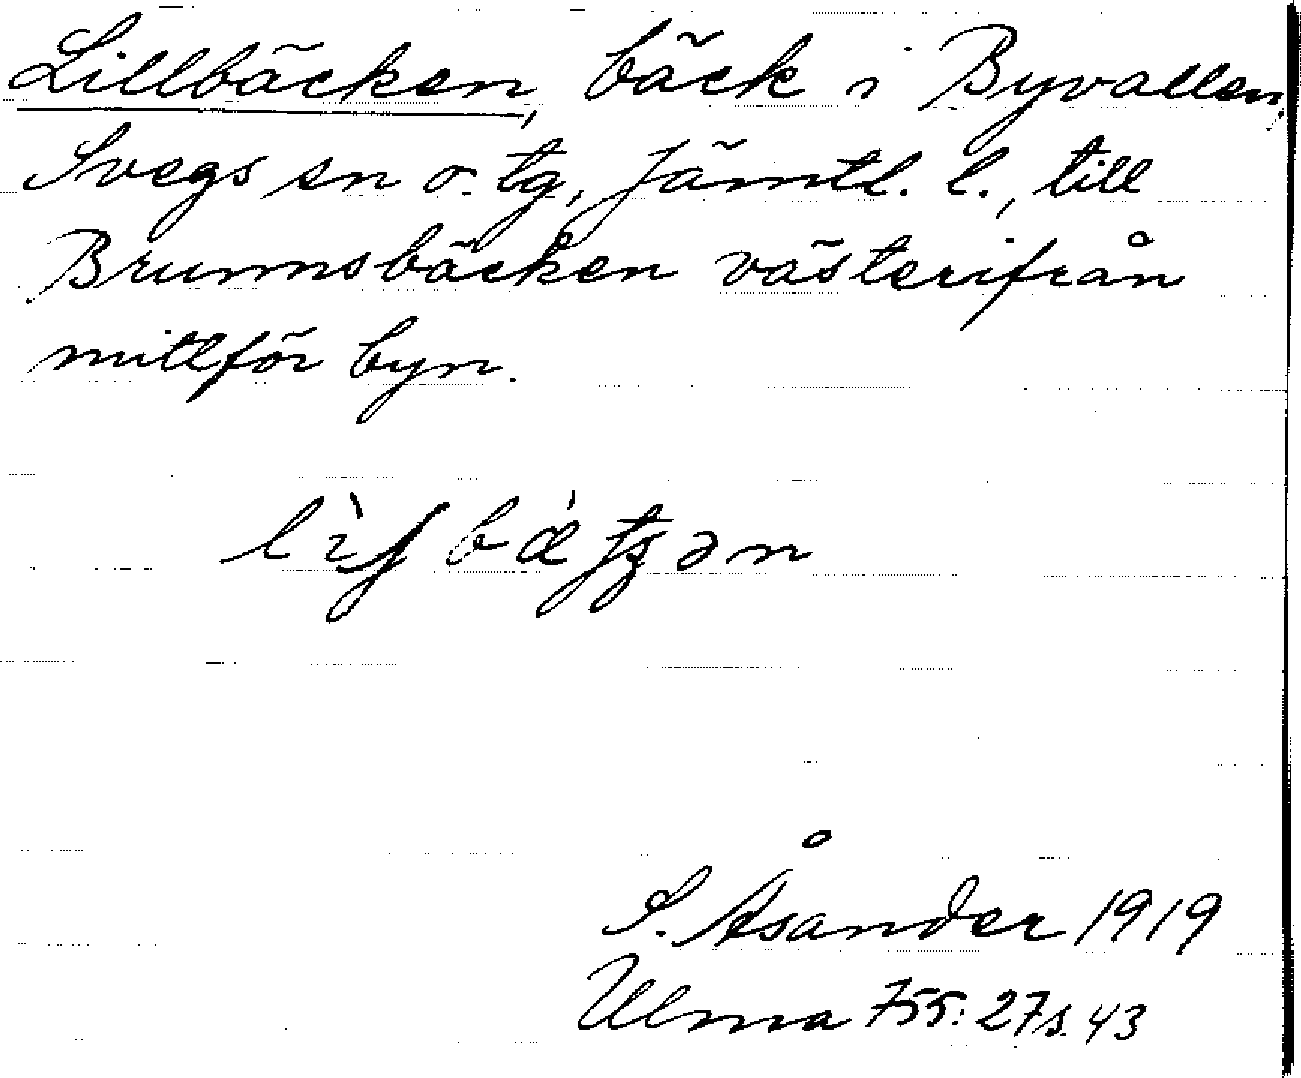 Lillbäcken, bäck i Byvallen,
Svegs sn o. tg, Jämtl. l., till
Brunnsbäcken västerifrån
mittför byn.
S. Åsander 1919
Ulma 755:27 s. 43